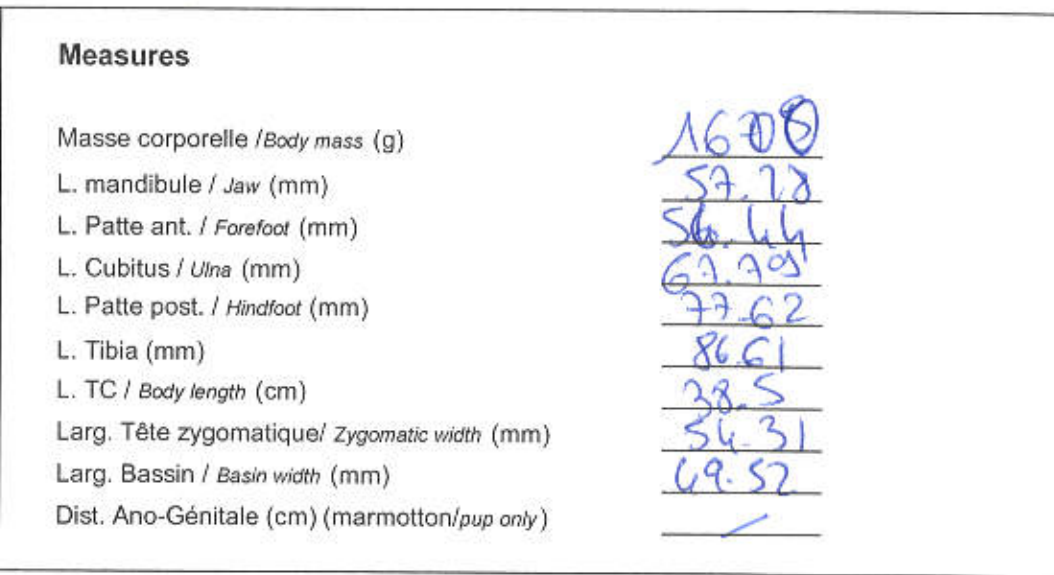 Measures
Masse corporelle /Body mass (g)
L. mandibule / Jaw (mm) 57.28
L. Patte ant. / Forefoot (mm) 54.44
L. Cubitus / Ulna (mm) 67.79
L. Patte post. / Hindfoot (mm) 77.62
L. Tibia (mm) 86.61
L. TC / Body length (cm) 38.5
Larg. Tête zygomatique/ Zygomatic width (mm) 54.31
Larg. Bassin / Basin width (mm) 49.52
Dist. Ano-Génitale (cm) (marmotton/pup only) /